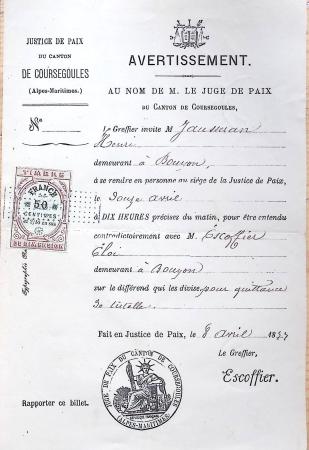 JUSTICE DE PAIX
DU CANTON
DE COURSEGOULES
(Alpes-Maritimes.)
AVERTISSEMENT.
AU NOM DE M. LE JUGE DE PAIX
DU CANTON DE COURSEGOULES,
No
Le Greffier invite M Jausseran
Henri
demeurant à Bouyon,
à se rendre en personne au siége de la Justice de Paix,
le douze avril
à DIX HEURES précises du matin, pour être entendu
contradictoirement avec M. Escoffier
Eloi
demeurant à Bouyon
sur le différend qui les divise, pour quittance
de tutelle.
Fait en Justice de Paix, le 8 avril
Le Greffier,
Escoffier.
Rapporter ce billet.
TIMBRE
FRANC
50
CENTIMES
DE DIMENSION
DE PAIX DU CANTON DE COURSEGOULES
(ALPES-MARITIMES)